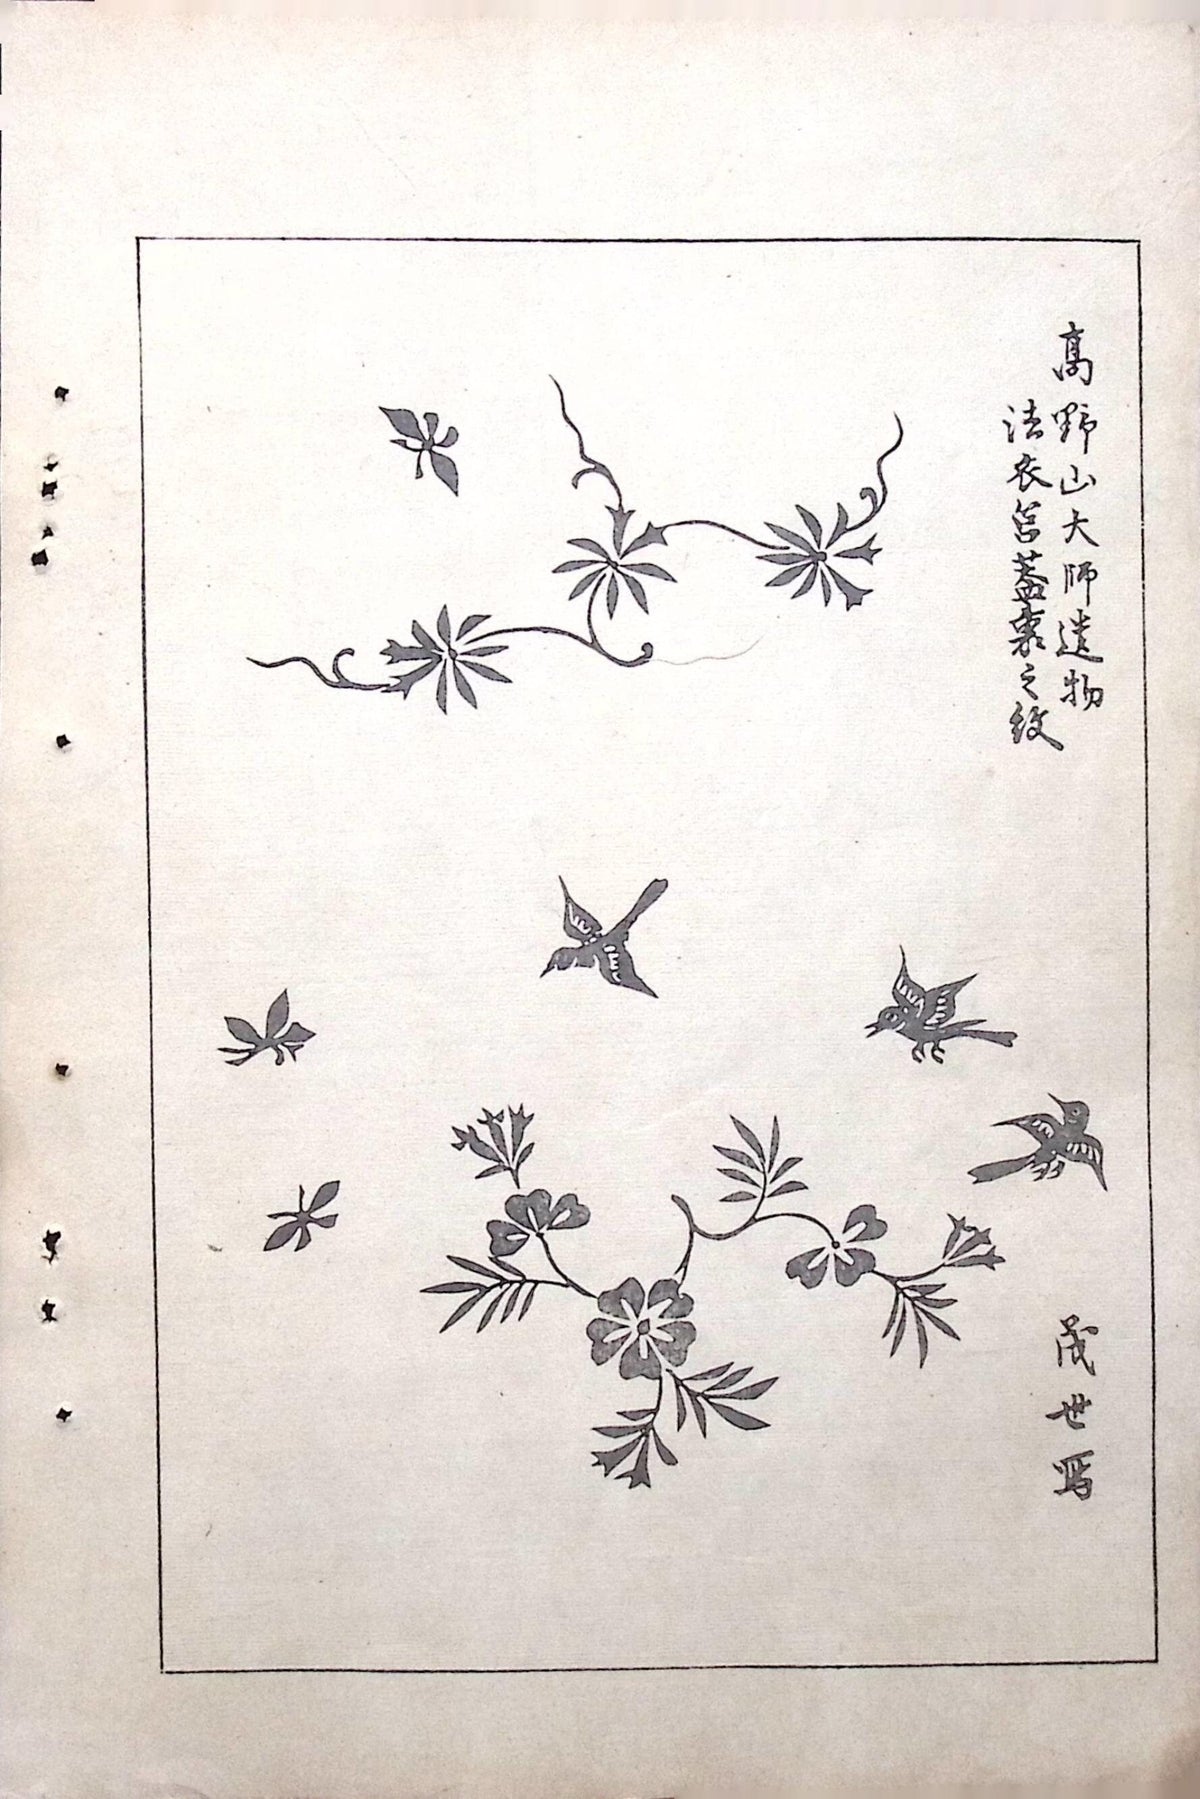 高野山大師遺物
法衣筥蓋裏之紋
茂世写